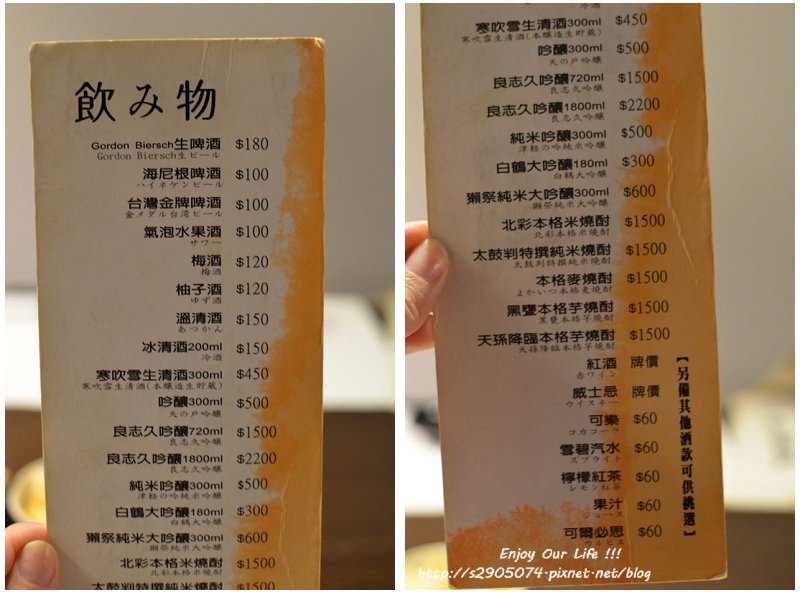 飲み物
Gordon Biersch生啤酒 $180
Gordon Biersch生ビール
海尼根啤酒 $100
ハイネケンビール
台灣金牌啤酒 $100
金メダル台湾ビール
氣泡水果酒 $100
サワー
梅酒 $120
梅酒
柚子酒 $120
ゆず酒
溫清酒 $150
あつかん
冰清酒200ml $150
冷酒
寒吹雪生清酒300ml $450
寒吹雪生清酒(本醸造生貯蔵)
吟釀300ml $500
天の戸吟醸
良志久吟釀720ml $1500
良志久吟醸
良志久吟釀1800ml $2200
良志久吟醸
純米吟釀300ml $500
津軽の吟純米吟醸
白鶴大吟釀180ml $300
白鶴大吟醸
獺祭純米大吟釀300ml $600
獺祭純米大吟醸
北彩本格米燒酎 $1500
北彩本格米焼酎
太鼓判特撰純米燒酎 $1500
冷酒
寒吹雪生清酒300ml $450
寒吹雪生清酒(本醸造生貯蔵)
吟釀300ml $500
天の戸吟醸
良志久吟釀720ml $1500
良志久吟醸
良志久吟釀1800ml $2200
良志久吟醸
純米吟釀300ml $500
津軽の吟純米吟醸
白鶴大吟釀180ml $300
白鶴大吟醸
獺祭純米大吟釀300ml $600
獺祭純米大吟醸
北彩本格米燒酎 $1500
北彩本格米焼酎
太鼓判特撰純米燒酎 $1500
太鼓判特撰純米焼酎
本格麥燒酎 $1500
よかいつ本格麦焼酎
黑甕本格芋燒酎 $1500
黒甕本格芋焼酎
天孫降臨本格芋燒酎 $1500
天孫降臨本格芋焼酎
紅酒 牌價
赤ワイン
威士忌 牌價
ウイスキー
可樂 $60
コカコーラ
雪碧汽水 $60
スプライト
檸檬紅茶 $60
レモン紅茶
果汁 $60
ジュース
可爾必思 $60
カルピス
【另備其他酒款可供挑選】
Enjoy Our Life !!!
http://s2905074.pixnet.net/blog